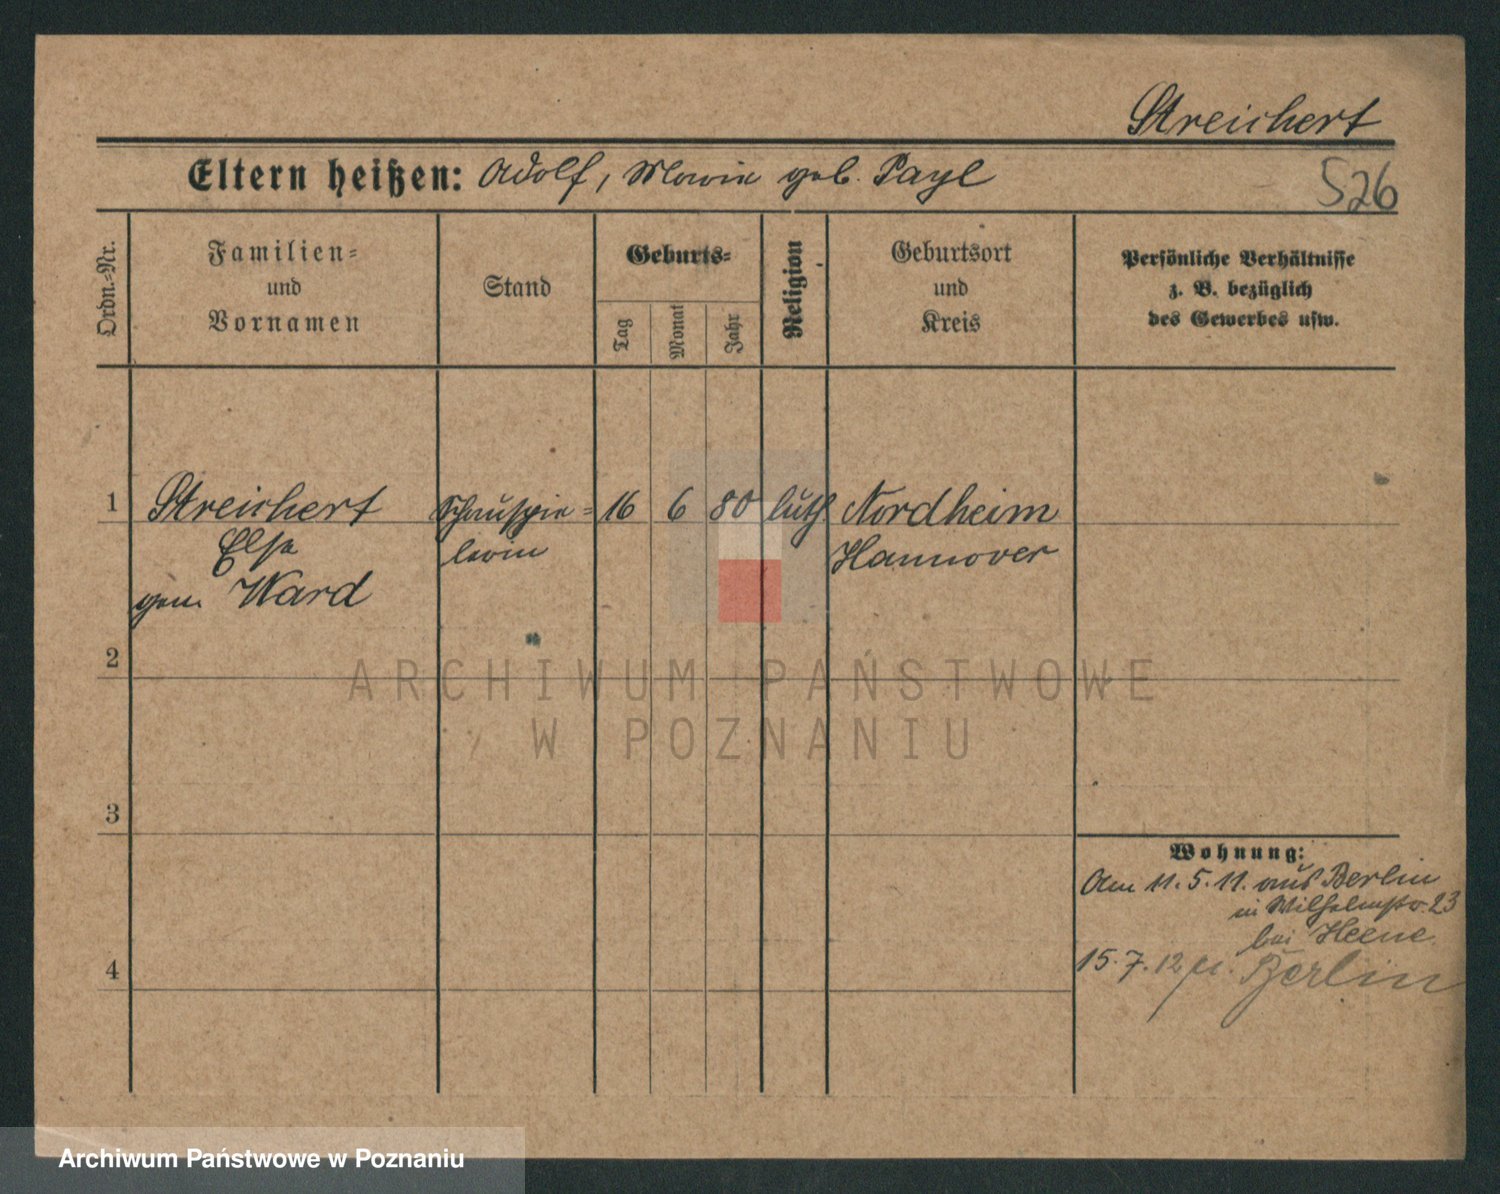 Streichert
Eltern heißen: Adolf, Marie geb. Payl
526
Ordn.-Nr.
Familien-
und
Vornamen
Stand
Geburts-
Tag
Monat
Jahr
Religion
Geburtsort
und
Kreis
Persönliche Verhältnisse
z. B. bezüglich
des Gewerbes usw.
1 Streichert Schauspie= 16 6 80 luth Nordheim
Else lerin Hannover
gen. Ward
2
3
4
Wohnung:
Am 11. 5. 11. aus Berlin
in Wilhelmstr. 23
bei Heene
15. 7. 12 Berlin
ARCHIWUM PAŃSTWOWE
W POZNANIU
Archiwum Państwowe w Poznaniu